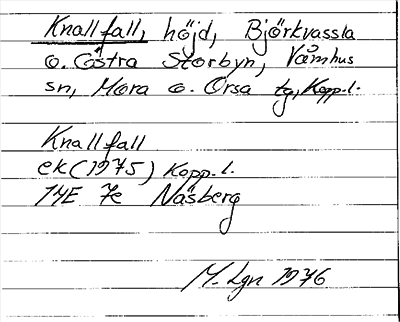 Knallfall, höjd, Björkvassla
o. Östra Storbyn, Våmhus
sn, Mora o. Orsa tg, Kopp. l.
Knallfall
ek (1975) Kopp. l.
14E 7e Näsberg
M. Lgn 1976